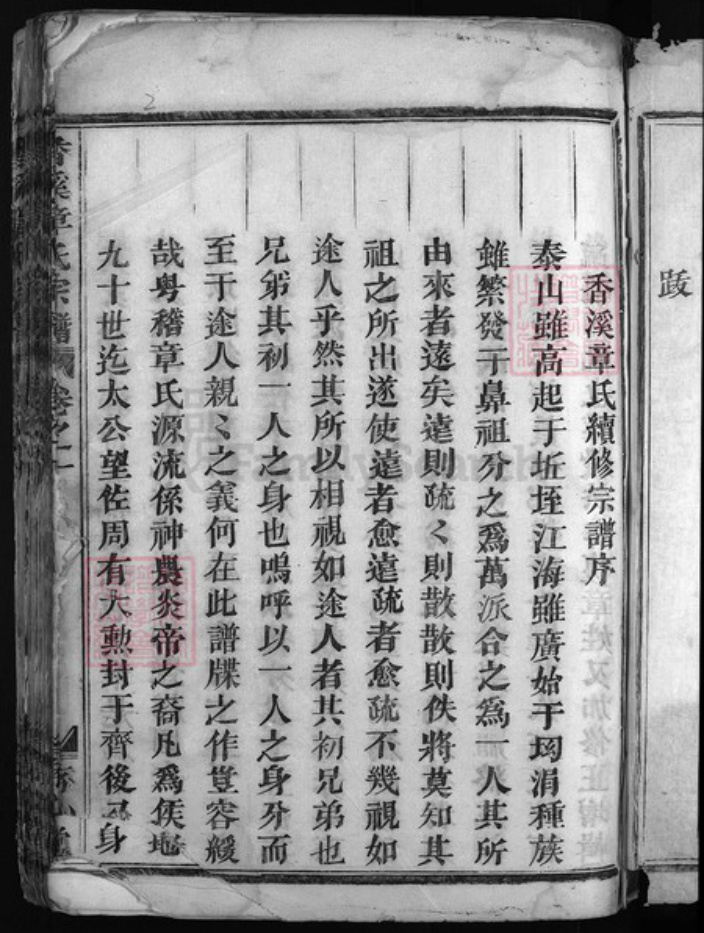 跋
香溪章氏續修宗譜序
泰山雖高起于坵垤江海雖廣始于㘭涓種蔟
雖繁發于鼻祖分之爲萬派合之爲一人其所
由來者遠矣遠則疏〻則散散則佚將莫知其
祖之所出遂使遠者愈遠疏者愈疏不幾視如
途人乎然其所以相視如途人者其初兄弟也
兄弟其初一人之身也嗚呼以一人之身分而
至于途人親〻之義何在此譜牒之作豈容緩
哉粤稽章氏源流係神農炎帝之裔凡爲侯地
九十世迄太公望佐周有大勳封于齊後 身
香溪章氏宗譜 卷之一
FamilySearch
2